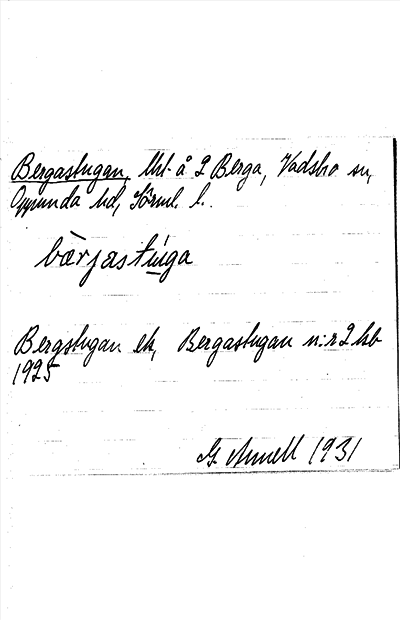 Bergastugan, lht å 2 Berga, Vadsbro sn,
Oppunda hd, Sörml. l.
bärjastuga
Bergstugan ek, Bergastugan n:r 2 hb
1925
G. Annell 1931